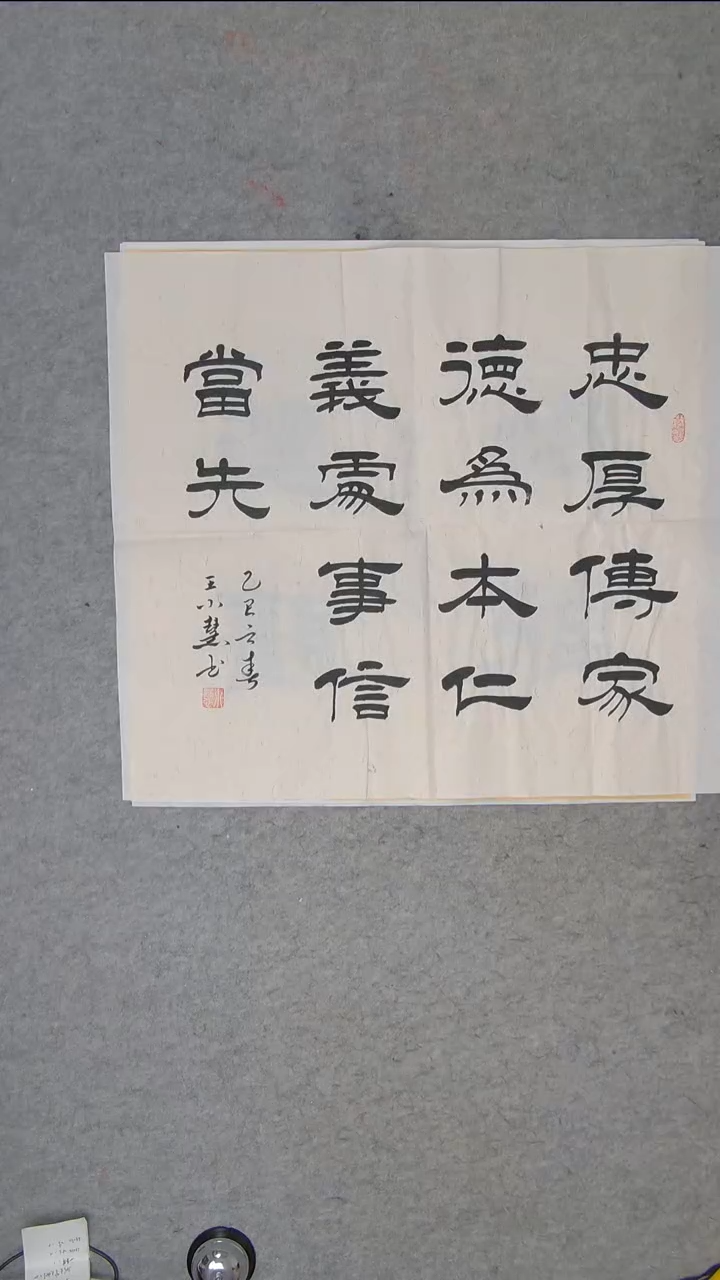 忠厚傳家
德為本仁
義處事信
當先
乙巳之春
王小慧书